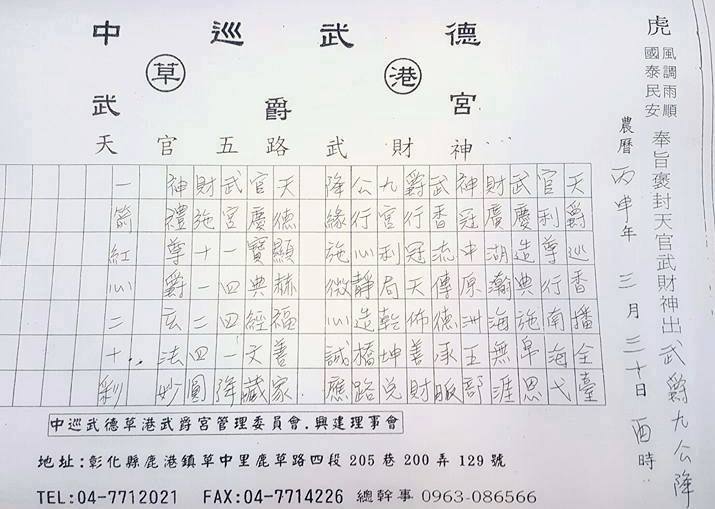 虎
風調雨順
國泰民安
奉旨褒封天官武財神出武爵九公降
農曆丙申年三月三十日酉時
中巡武德
草港
武爵宮
天官五路武財神
天爵巡香播全臺
官利尊行南海弋
武慶造典施帛恩
財廣湖瀚海無涯
神冠中原洲五部
武香流傳德承服
爵行冠天佈善財
九宮利局乾坤兌
公行心靜造橋路
降緣施微心誠應
天德顯赫福善家
官慶寶典經文藏
武宮一四四一降
財施十一二四圓
神禮尊爵玄法妙
一箭紅心二十..彩
中巡武德草港武爵宮管理委員會.興建理事會
地址:彰化縣鹿港鎮草中里鹿草路四段205巷200弄129號
TEL:04-7712021 FAX:04-7714226 總幹事 0963-086566